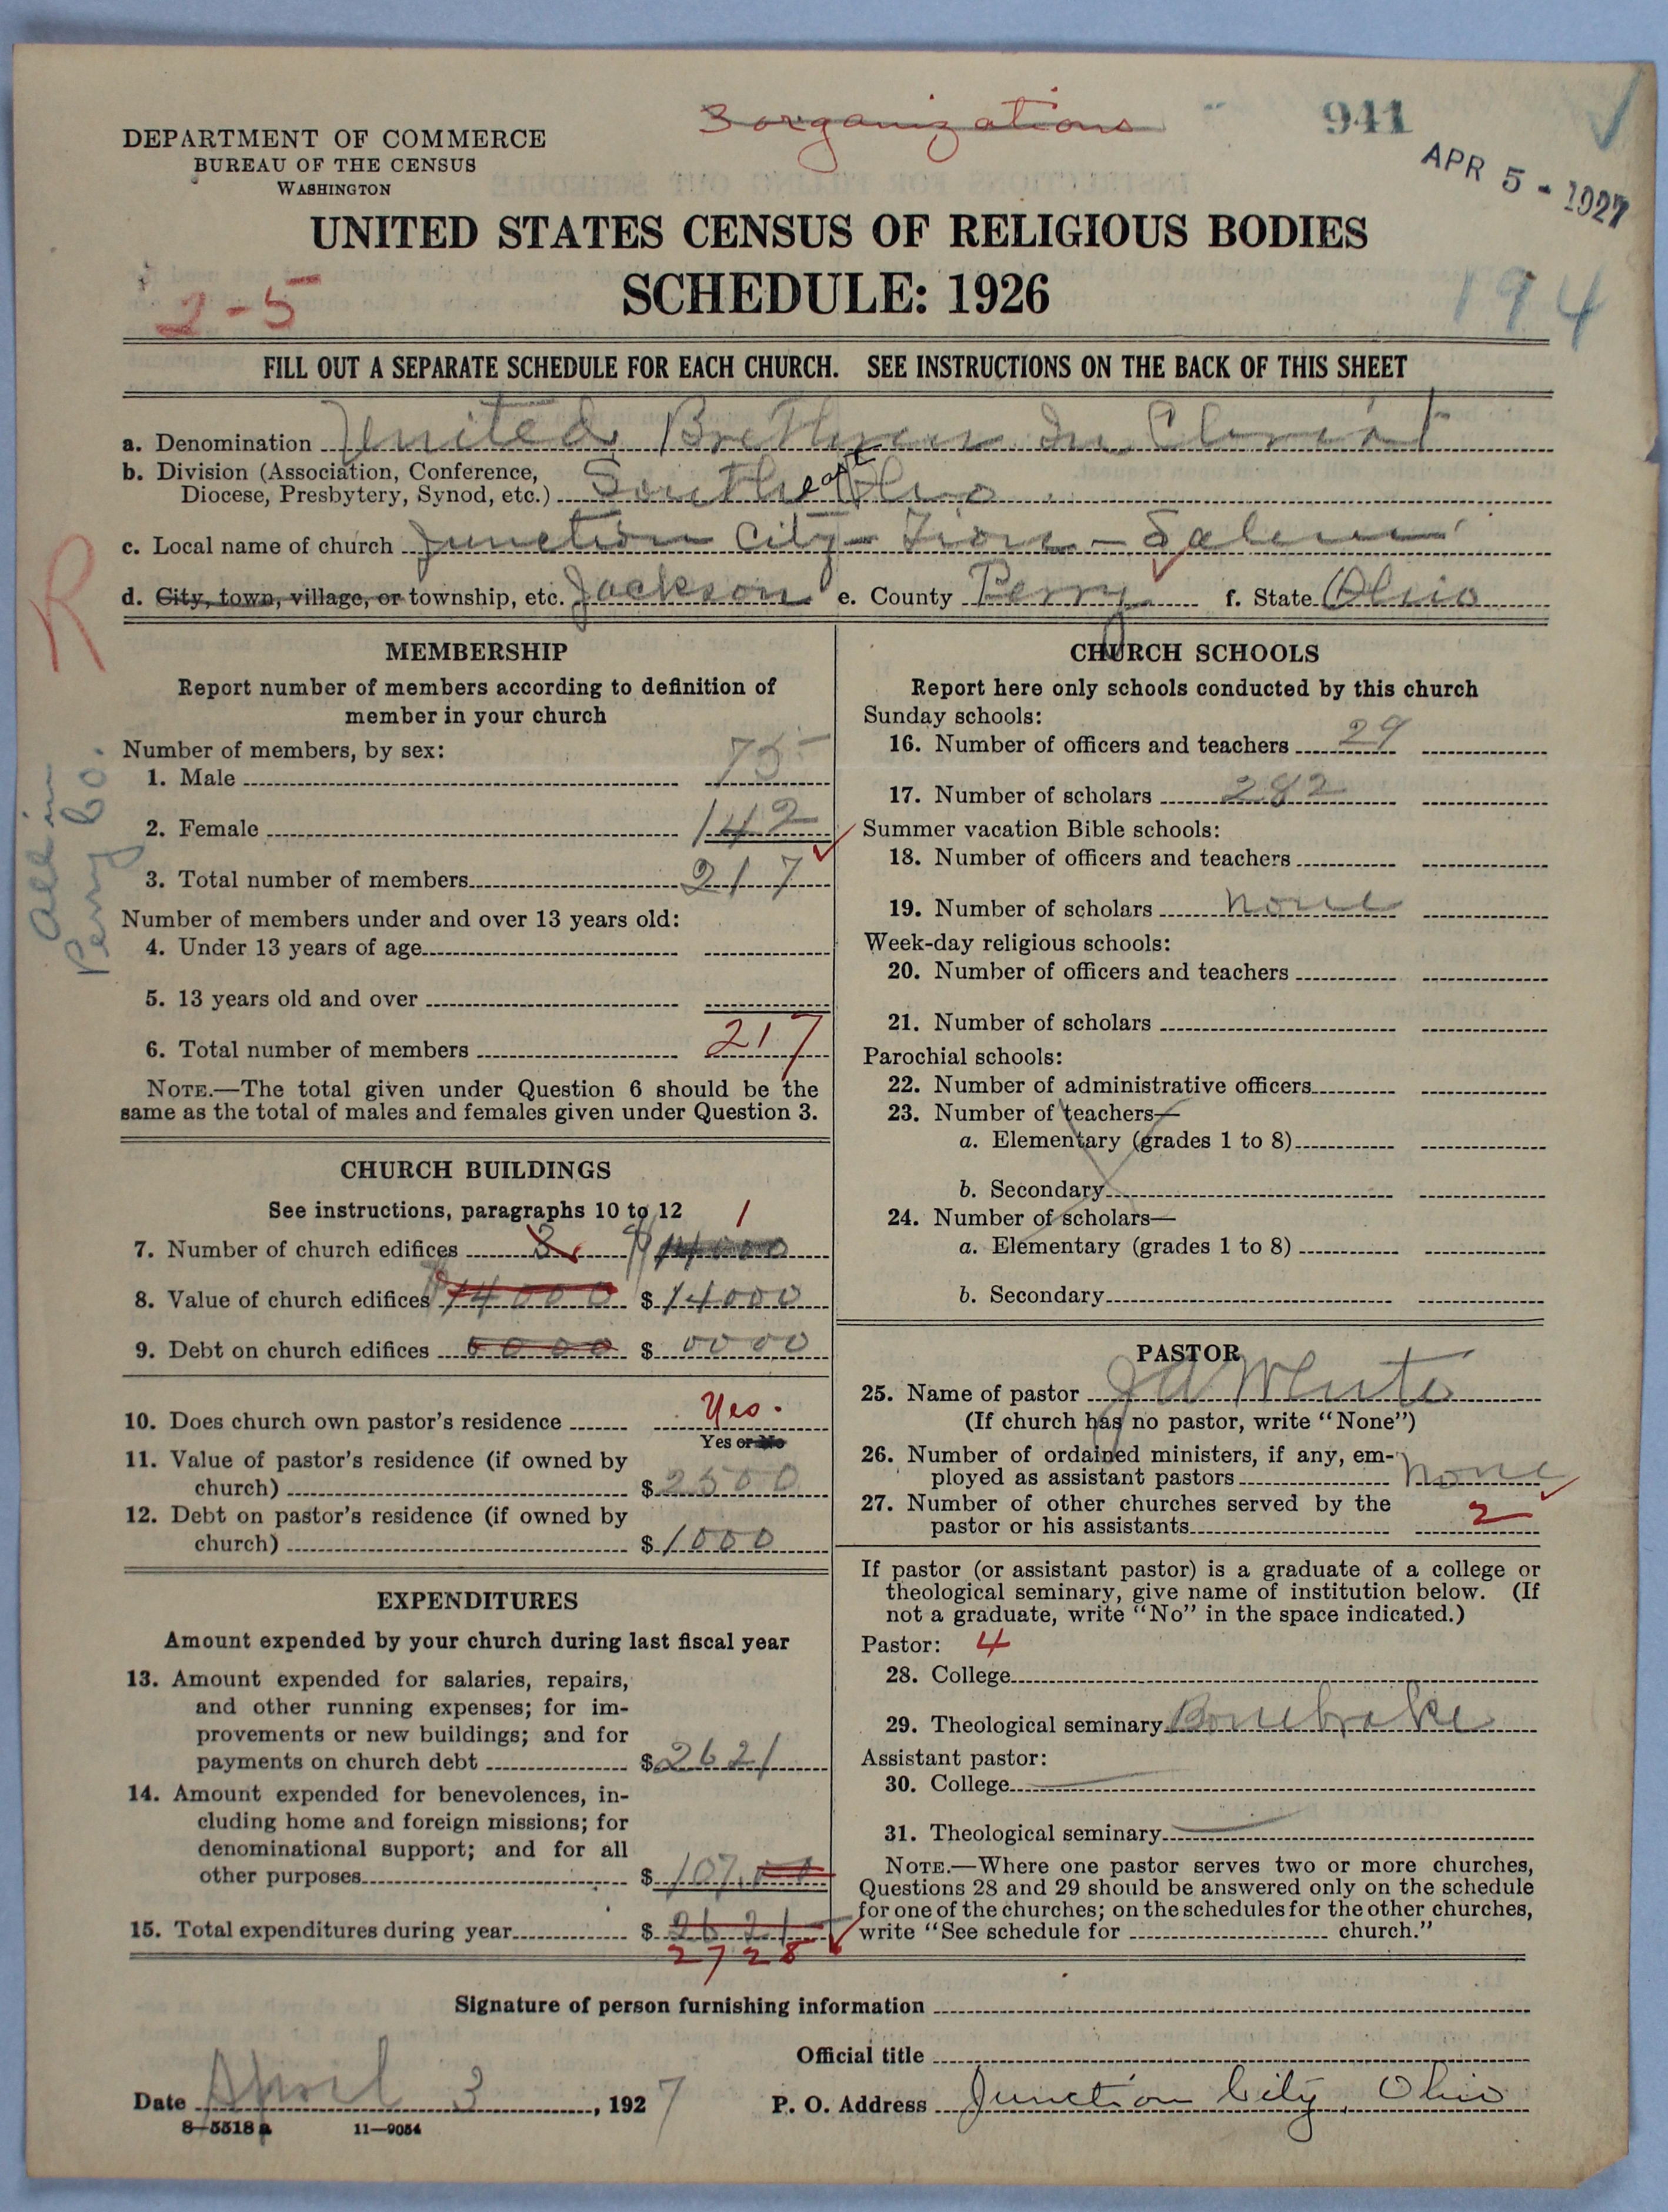 3 organizations
941
APR 5 - 1927
DEPARTMENT OF COMMERCE
BUREAU OF THE CENSUS
WASHINGTON
UNITED STATES CENSUS OF RELIGIOUS BODIES
SCHEDULE: 1926
2-5
194
FILL OUT A SEPARATE SCHEDULE FOR EACH CHURCH. SEE INSTRUCTIONS ON THE BACK OF THIS SHEET
a. Denomination United Brethren In Christ
b. Division (Association, Conference,
Diocese, Presbytery, Synod, etc.) Southeast Ohio
c. Local name of church Junction City - Zion - Salem
d. City, town, village, or township, etc. Jackson e. County Perry f. State Ohio
R
All in
Perry Co.
MEMBERSHIP
Report number of members according to definition of
member in your church
Number of members, by sex:
1. Male 75
2. Female 142
3. Total number of members 217
Number of members under and over 13 years old:
4. Under 13 years of age
5. 13 years old and over
6. Total number of members 217
NOTE.—The total given under Question 6 should be the
same as the total of males and females given under Question 3.
CHURCH BUILDINGS
See instructions, paragraphs 10 to 12
1
7. Number of church edifices 3 14000
8. Value of church edifices 14000 $ 14000
9. Debt on church edifices 0000 $ 0000
10. Does church own pastor's residence Yes.
Yes or No
11. Value of pastor's residence (if owned by
church) $ 2500
12. Debt on pastor's residence (if owned by
church) $ 1000
EXPENDITURES
Amount expended by your church during last fiscal year
13. Amount expended for salaries, repairs,
and other running expenses; for im-
provements or new buildings; and for
payments on church debt $ 2621
14. Amount expended for benevolences, in-
cluding home and foreign missions; for
denominational support; and for all
other purposes $ 107.00
15. Total expenditures during year $ 2621
2728
CHURCH SCHOOLS
Report here only schools conducted by this church
Sunday schools:
16. Number of officers and teachers 29
17. Number of scholars 282
Summer vacation Bible schools:
18. Number of officers and teachers
19. Number of scholars none
Week-day religious schools:
20. Number of officers and teachers
21. Number of scholars
Parochial schools:
22. Number of administrative officers
23. Number of teachers—
a. Elementary (grades 1 to 8)
b. Secondary
24. Number of scholars—
a. Elementary (grades 1 to 8)
b. Secondary
PASTOR
25. Name of pastor J A
(If church has no pastor, write "None")
26. Number of ordained ministers, if any, em-
ployed as assistant pastors none
27. Number of other churches served by the
pastor or his assistants 2
If pastor (or assistant pastor) is a graduate of a college or
theological seminary, give name of institution below. (If
not a graduate, write "No" in the space indicated.)
Pastor: 4
28. College
29. Theological seminary Bonebrake
Assistant pastor:
30. College
31. Theological seminary
NOTE.—Where one pastor serves two or more churches,
Questions 28 and 29 should be answered only on the schedule
for one of the churches; on the schedules for the other churches,
write "See schedule for church."
Signature of person furnishing information
Official title
Date April 3, 1927 P. O. Address Junction City, Ohio
8-5518 a 11-9054